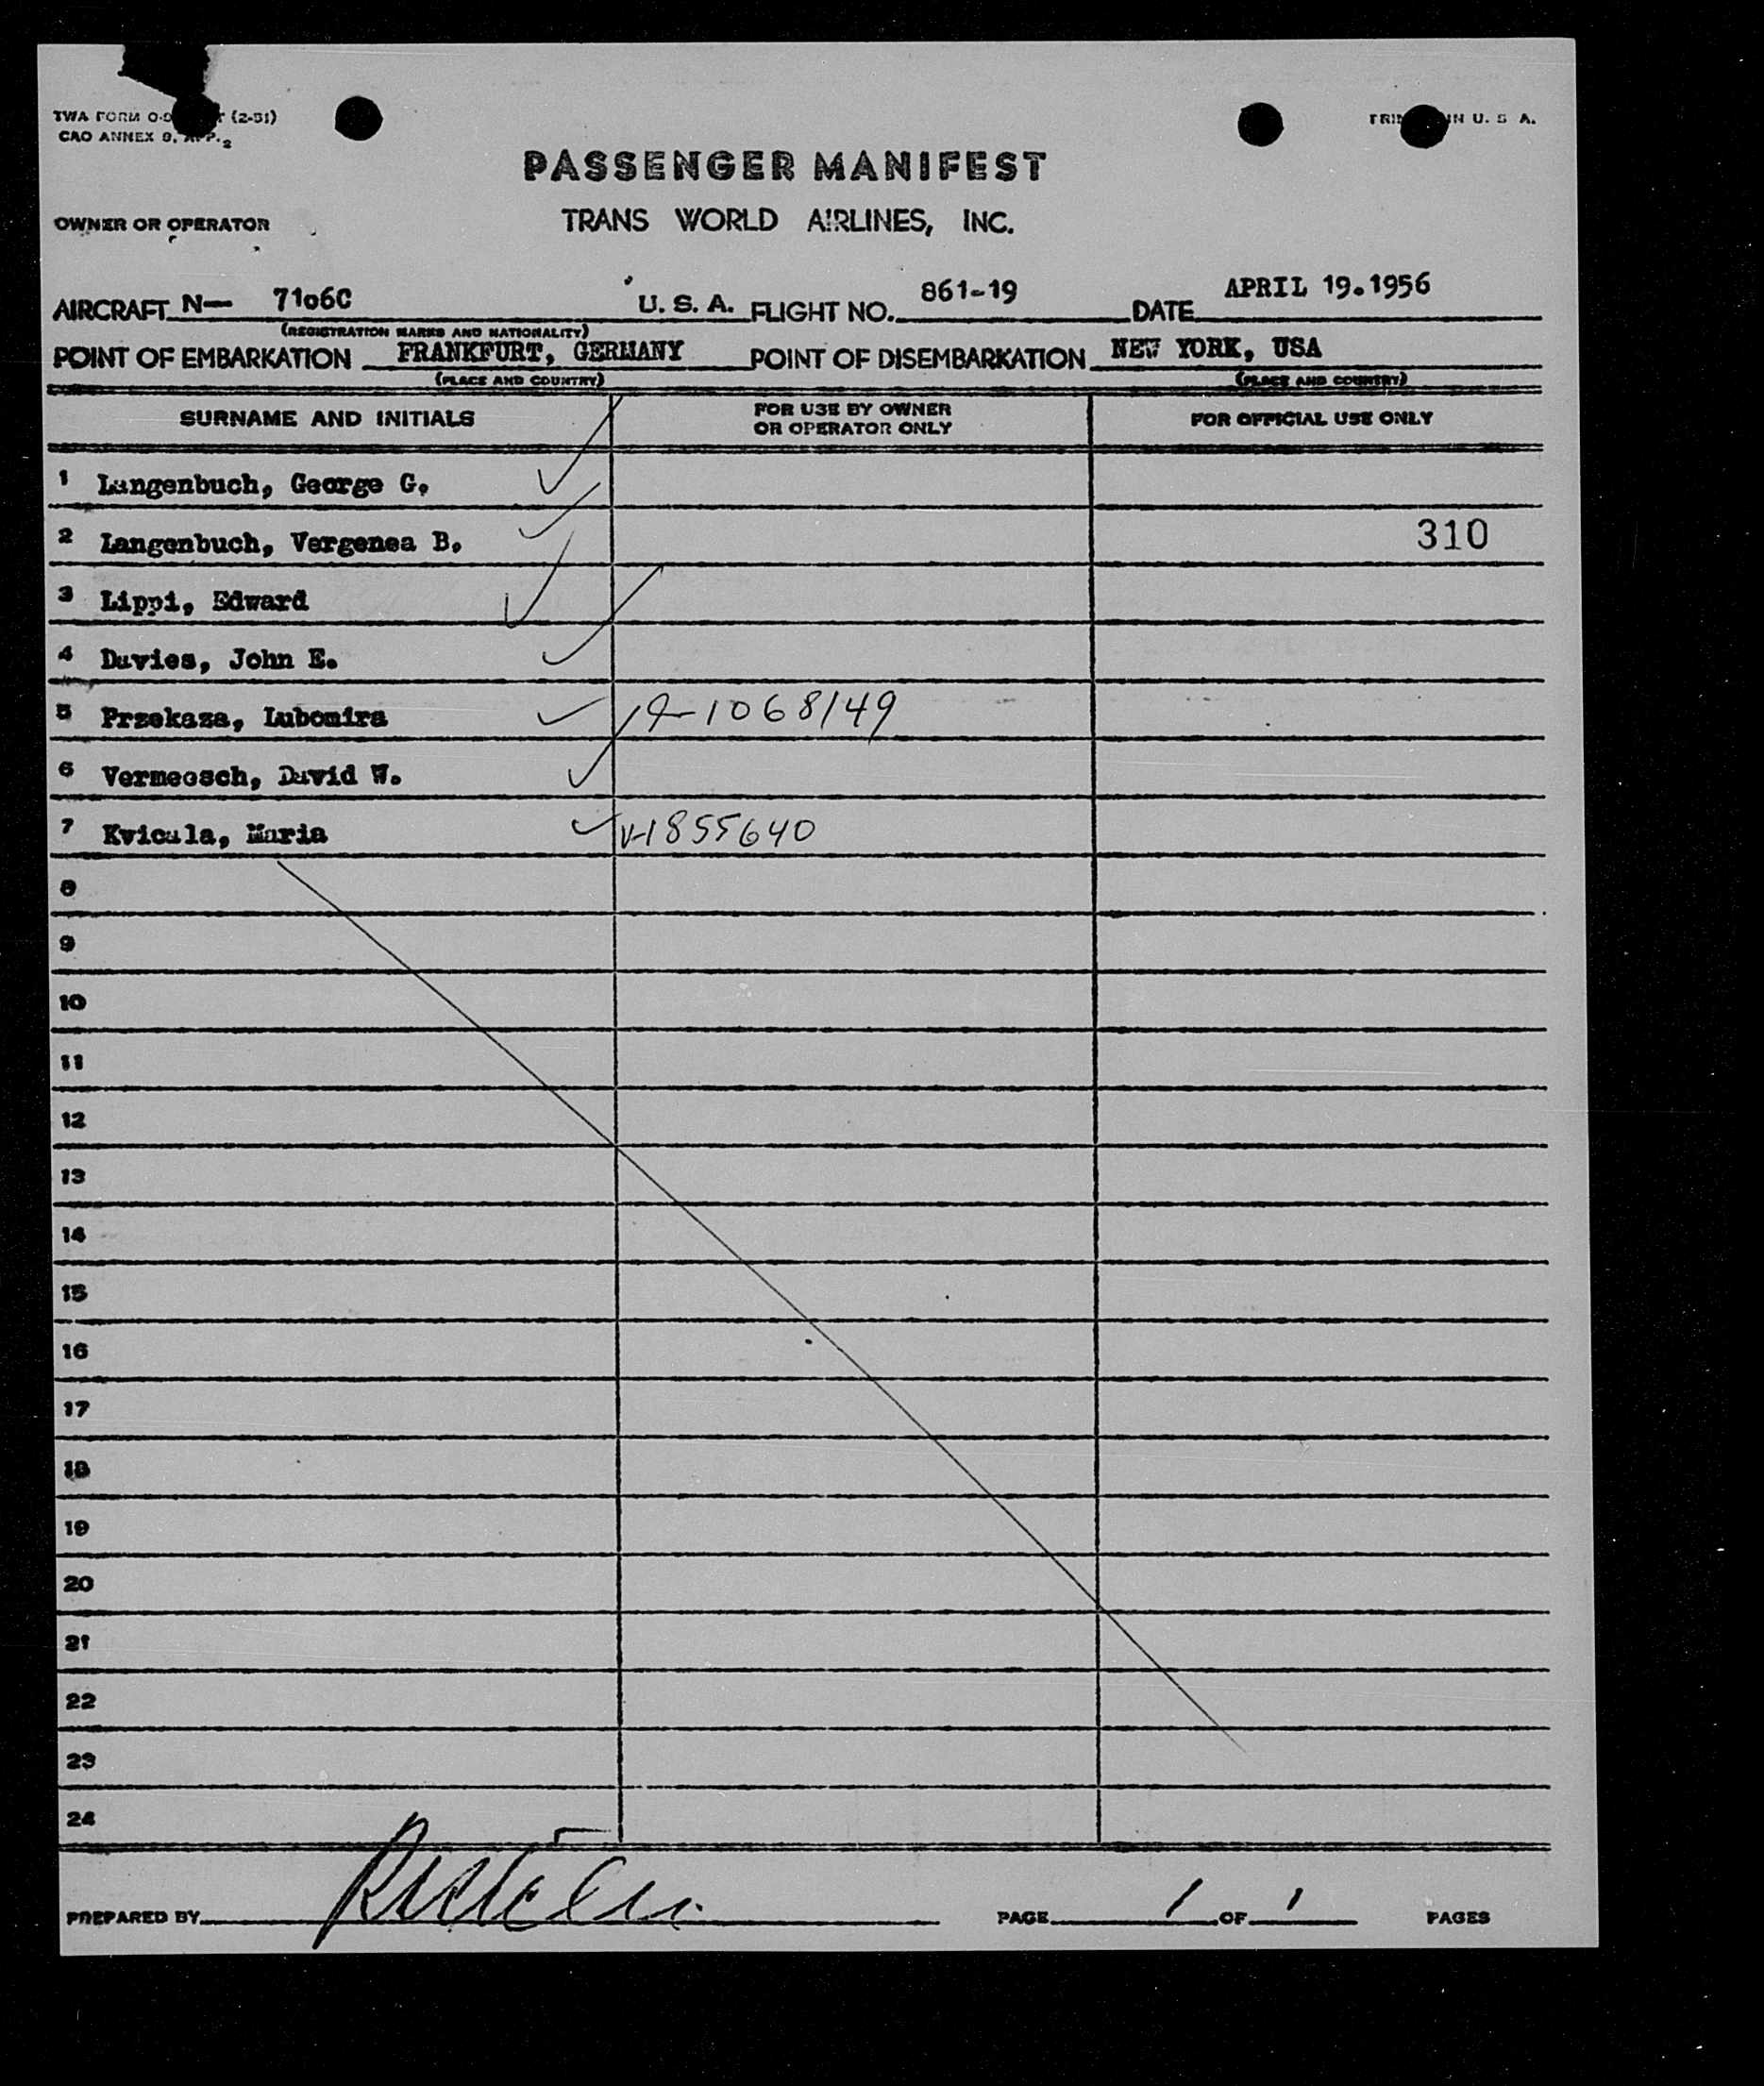 TWA FORM (2-51)
CAO ANNEX 9, APP. 2
PRINTED IN U. S. A.
PASSENGER MANIFEST
OWNER OR OPERATOR TRANS WORLD AIRLINES, INC.
AIRCRAFT N— 7106C U. S. A. FLIGHT NO. 861-19 DATE APRIL 19.1956
(REGISTRATION MARKS AND NATIONALITY)
POINT OF EMBARKATION FRANKFURT, GERMANY POINT OF DISEMBARKATION NEW YORK, USA
(PLACE AND COUNTRY) (PLACE AND COUNTRY)
SURNAME AND INITIALS FOR USE BY OWNER OR OPERATOR ONLY FOR OFFICIAL USE ONLY
1 Langenbuch, George G.
2 Langenbuch, Vergenea B. 310
3 Lippi, Edward
4 Davies, John E.
5 Przekaza, Lubomira 1068149
6 Vermeosch, David W.
7 Kvicala, Maria V-1855640
8
9
10
11
12
13
14
15
16
17
18
19
20
21
22
23
24
PREPARED BY PAGE 1 OF 1 PAGES